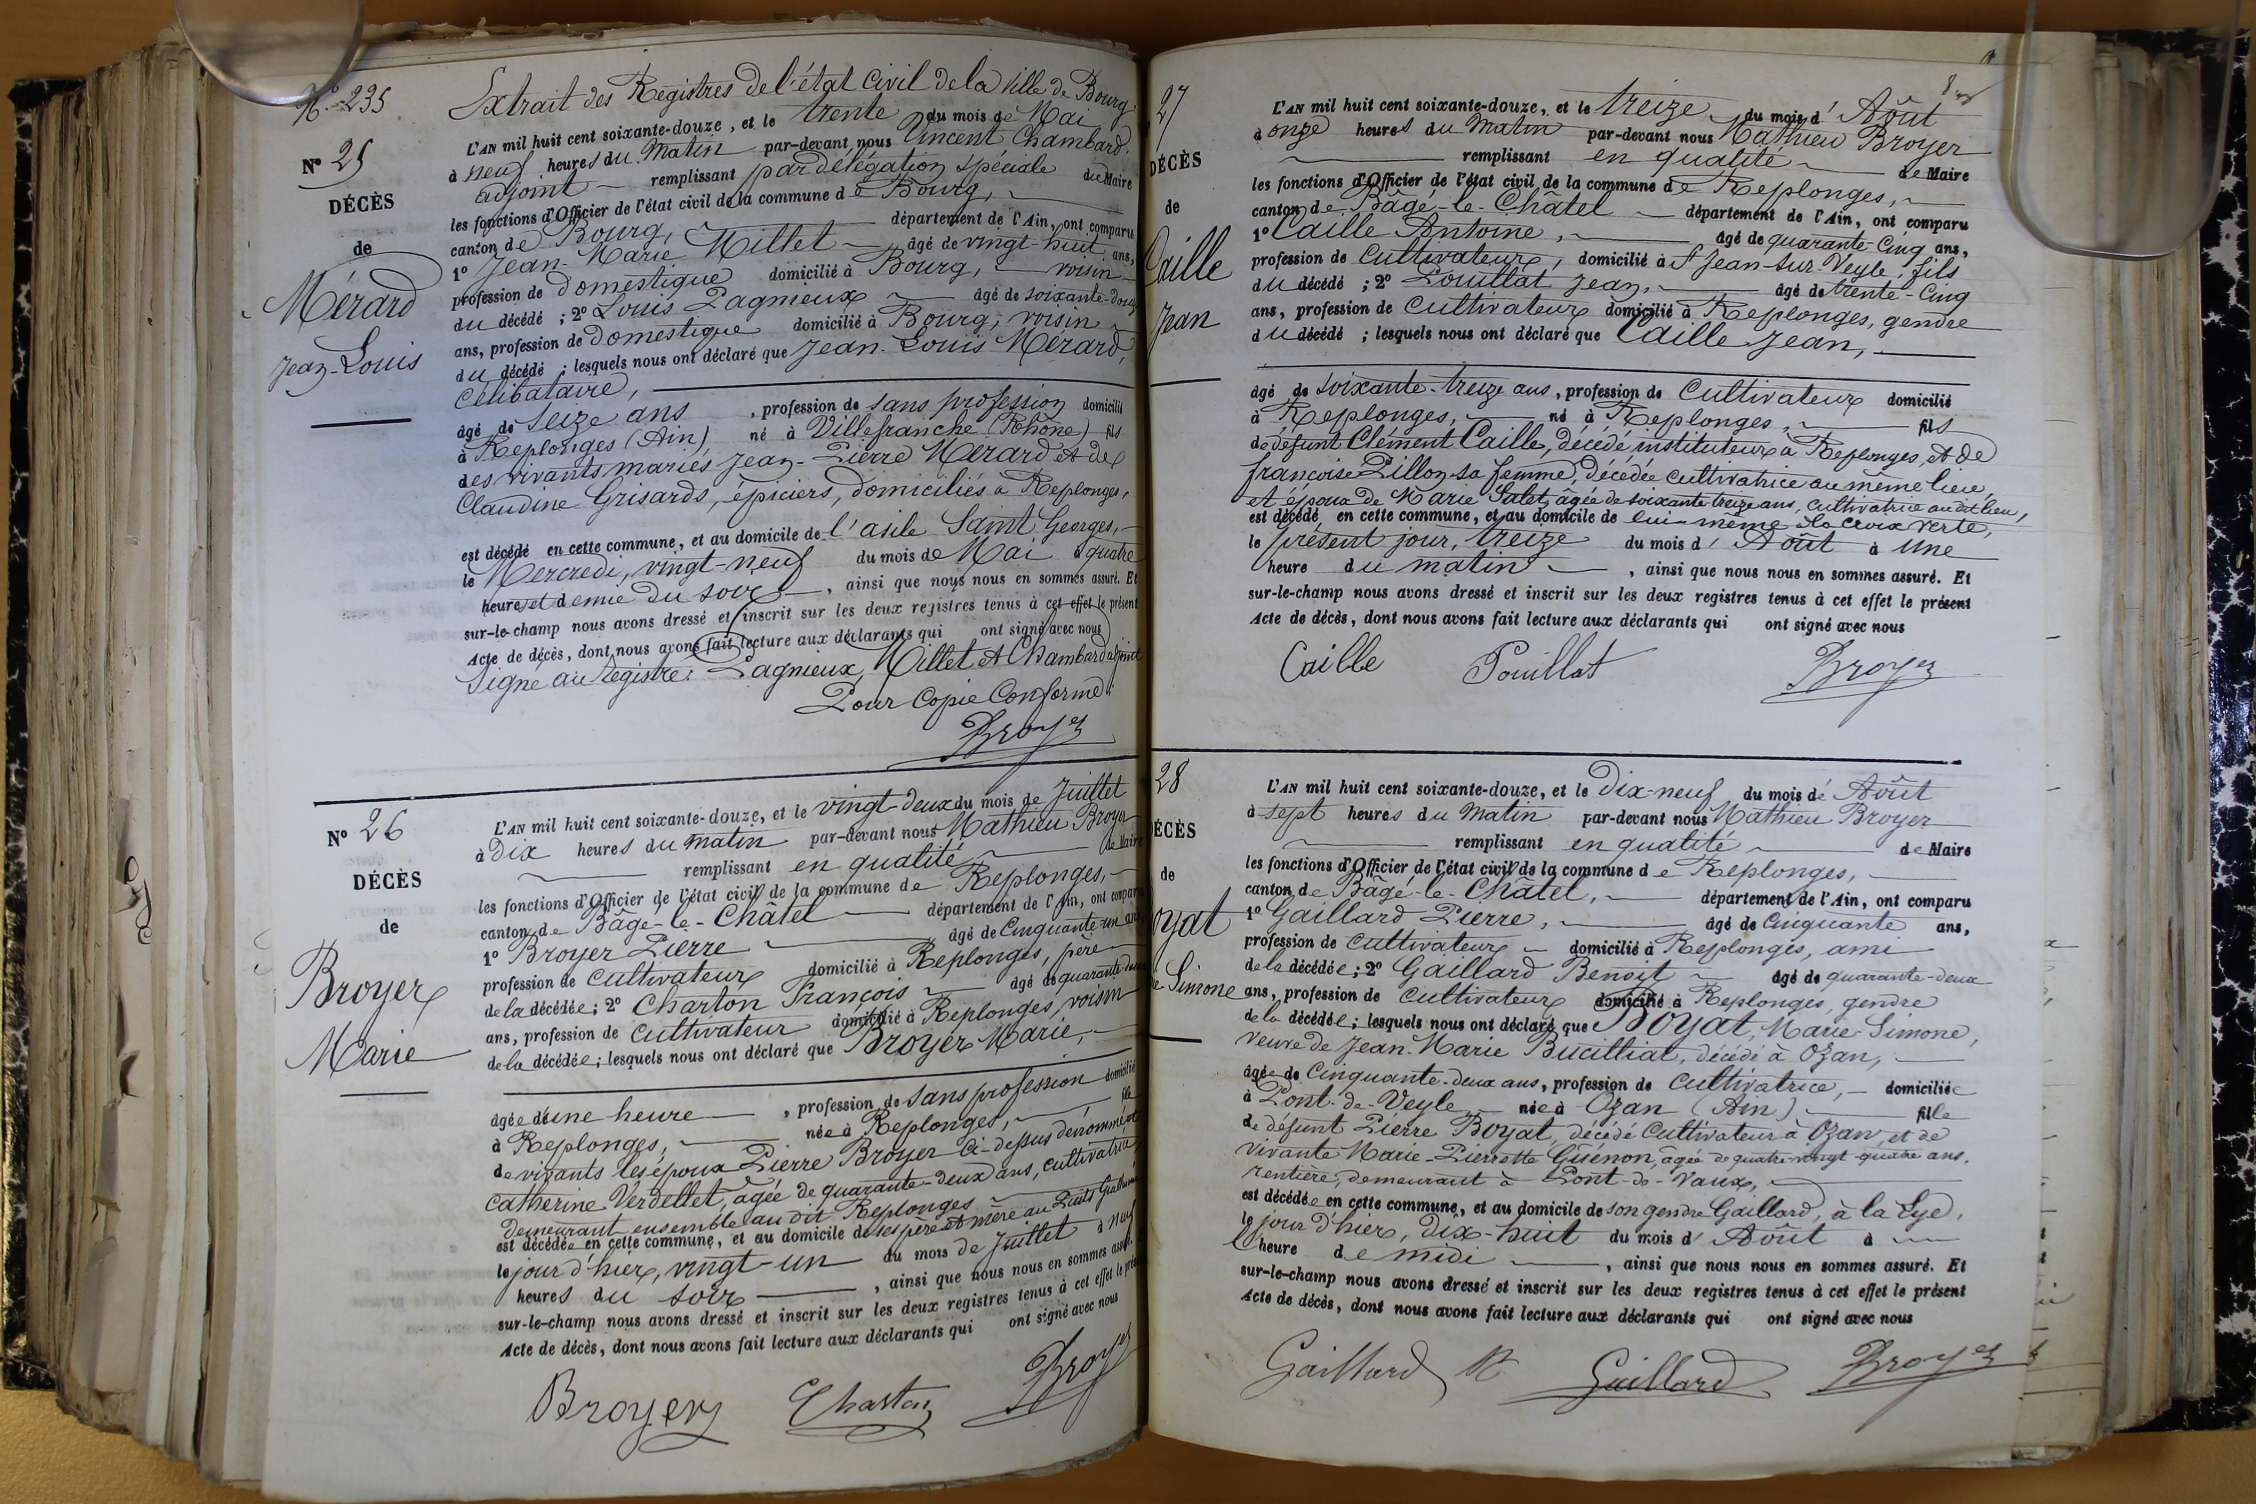 N° 235
Extrait des Registres de l'état civil de la ville de Bourg.
N° 25
DÉCÈS
de
Mérard
Jean-Louis
L'AN mil huit cent soixante-douze, et le trente du mois de Mai
à neuf heures du Matin par-devant nous Vincent Chambard,
adjoint remplissant par délégation spéciale du Maire
les fonctions d'Officier de l'état civil de la commune de Bourg,
canton de Bourg, département de l'Ain, ont comparu
1° Jean-Marie Millet âgé de vingt-huit ans,
profession de domestique domicilié à Bourg, voisin
du décédé ; 2° Louis Pagnieux âgé de soixante-douze
ans, profession de domestique domicilié à Bourg, voisin
du décédé ; lesquels nous ont déclaré que Jean-Louis Mérard,
célibataire,
âgé de seize ans, profession de sans profession domicilié
à Replonges (Ain) né à Villefranche (Rhône) fils
des vivants mariés Jean-Pierre Mérard et de
Claudine Grisards, épiciers, domiciliés à Replonges,
est décédé en cette commune, et au domicile de l'asile Saint Georges,
le Mercredi, vingt-neuf du mois de Mai à quatre
heures et demie du soir, ainsi que nous nous en sommes assuré. Et
sur-le-champ nous avons dressé et inscrit sur les deux registres tenus à cet effet le présent
Acte de décès, dont nous avons fait lecture aux déclarants qui ont signé avec nous
Signé au registre: Pagnieux, Millet et Chambard adjoint
Pour Copie Conforme:
Broyer
N° 26
DÉCÈS
de
Broyer
Marie
L'AN mil huit cent soixante-douze, et le vingt-deux du mois de Juillet
à Dix heures du matin par-devant nous Mathieu Broyer
remplissant en qualité de Maire
les fonctions d'Officier de l'état civil de la commune de Replonges,
canton de Bâgé-le-Châtel département de l'Ain, ont comparu
1° Broyer Pierre âgé de Cinquante-un ans
profession de cultivateur domicilié à Replonges, père
de la décédée ; 2° Charton François âgé de quarante-deux
ans, profession de cultivateur domicilié à Replonges, voisin
de la décédée ; lesquels nous ont déclaré que Broyer Marie,
âgée d'une heure, profession de sans profession domicilié
à Replonges, née à Replonges, fille
de vivants les époux Pierre Broyer ci-dessus dénommé, et
Catherine Verdellet, âgée de quarante-deux ans, cultivatrice
demeurant ensemble au dit Replonges
est décédée en cette commune, et au domicile de ses père et mère au Puits
le jour d'hier, vingt-un du mois de Juillet à neuf
heures du soir, ainsi que nous nous en sommes assuré.
sur-le-champ nous avons dressé et inscrit sur les deux registres tenus à cet effet le présent
Acte de décès, dont nous avons fait lecture aux déclarants qui ont signé avec nous
Broyer Charton Broyer
27
DÉCÈS
de
Caille
Jean
L'AN mil huit cent soixante-douze, et le treize du mois d'Août
à onze heures du Matin par-devant nous Mathieu Broyer
remplissant en qualité de Maire
les fonctions d'Officier de l'état civil de la commune de Replonges,
canton de Bâgé-le-Châtel département de l'Ain, ont comparu
1° Caille Antoine, âgé de quarante-Cinq ans,
profession de Cultivateur, domicilié à St Jean-sur-Veyle, fils
du décédé ; 2° Pouillat Jean, âgé de trente-Cinq
ans, profession de Cultivateur domicilié à Replonges, gendre
du décédé ; lesquels nous ont déclaré que Caille Jean,
âgé de soixante-treize ans, profession de Cultivateur domicilié
à Replonges, né à Replonges, fils
de défunt Clément Caille, décédé instituteur à Replonges, et de
françoise Pillon sa femme, décédée cultivatrice au même lieu,
et époux de Marie Salet, âgée de soixante treize ans, cultivatrice audit lieu,
est décédé en cette commune, et au domicile de lui-même à la croix verte,
le présent jour, treize du mois d'Août à Une
heure du matin, ainsi que nous nous en sommes assuré. Et
sur-le-champ nous avons dressé et inscrit sur les deux registres tenus à cet effet le présent
Acte de décès, dont nous avons fait lecture aux déclarants qui ont signé avec nous
Caille Pouillat Broyer
28
DÉCÈS
de
oyat
Simone
L'AN mil huit cent soixante-douze, et le Dix-neuf du mois d'Août
à sept heures du Matin par-devant nous Mathieu Broyer
remplissant en qualité de Maire
les fonctions d'Officier de l'état civil de la commune de Replonges,
canton de Bâgé-le-Châtel, département de l'Ain, ont comparu
1° Gaillard Pierre, âgé de Cinquante ans,
profession de cultivateur domicilié à Replonges, ami
de la décédée ; 2° Gaillard Benoit âgé de quarante-deux
ans, profession de cultivateur domicilié à Replonges, gendre
de la décédée ; lesquels nous ont déclaré que Boyat, Marie-Simone,
veuve de Jean-Marie Bucilliat, décédé à Ozan,
âgée de Cinquante-deux ans, profession de cultivatrice, domiciliée
à Pont-de-Veyle née à Ozan (Ain) fille
de défunt Pierre Boyat, décédé Cultivateur à Ozan, et de
vivante Marie-Pierrette Gisenon, âgée de quatre-vingt-quatre ans,
rentière, demeurant à Pont-de-Vaux,
est décédée en cette commune, et au domicile de son gendre Gaillard, à la Lye,
le jour d'hier, dix-huit du mois d'Août à
l'heure de midi, ainsi que nous nous en sommes assuré. Et
sur-le-champ nous avons dressé et inscrit sur les deux registres tenus à cet effet le présent
Acte de décès, dont nous avons fait lecture aux déclarants qui ont signé avec nous
Gaillard Gaillard Broyer